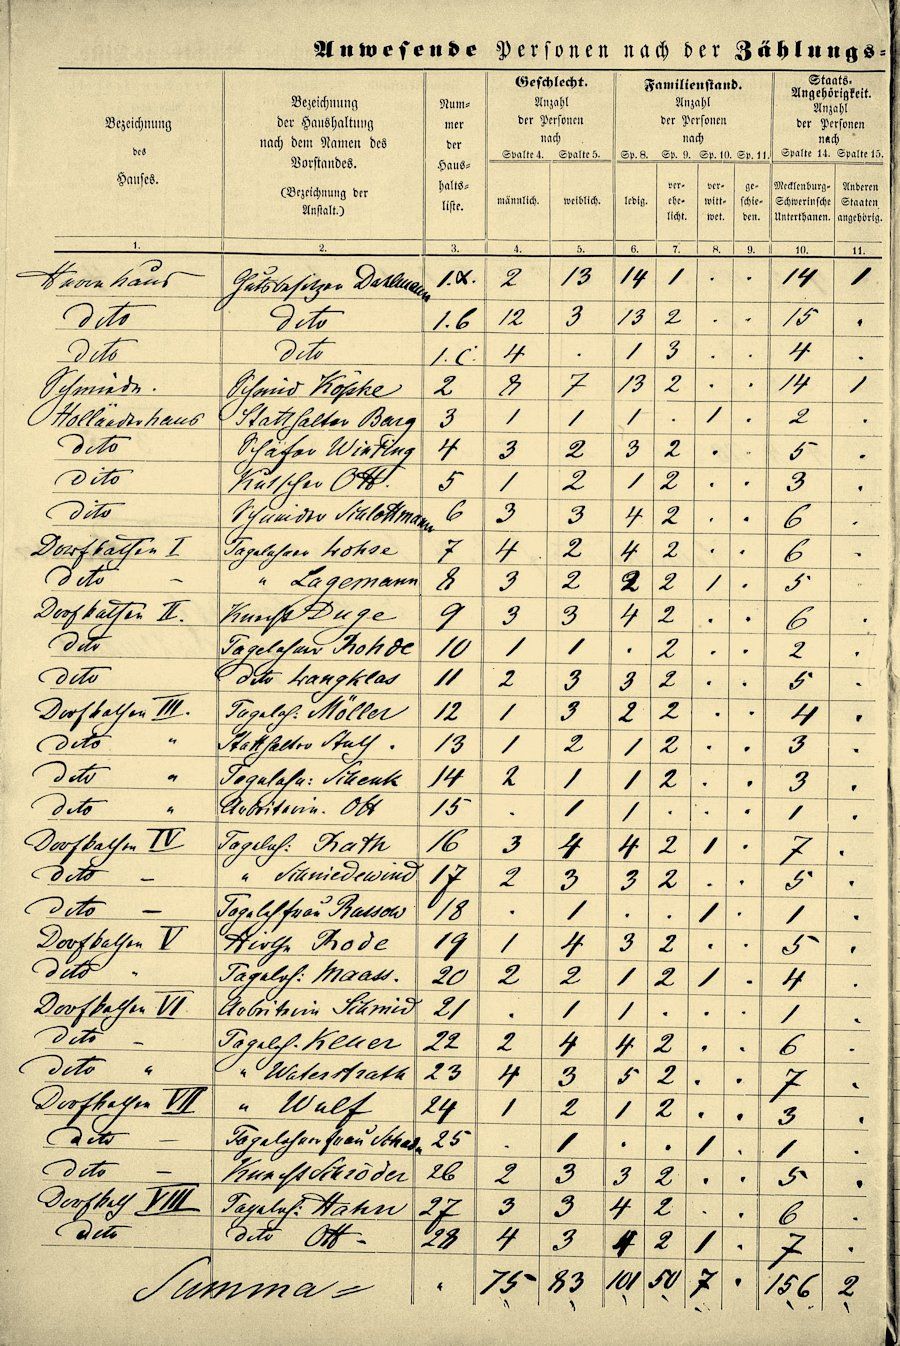 Anwesende Personen nach der Zählungs=
Bezeichnung des Hauses.
Bezeichnung der Haushaltung nach dem Namen des Vorstandes. (Bezeichnung der Anstalt.)
Num=mer der Haus=halts=liste.
Geschlecht. Anzahl der Personen nach
Familienstand. Anzahl der Personen nach
Staats-Angehörigkeit. Anzahl der Personen nach
Spalte 4. Spalte 5. Sp. 8. Sp. 9. Sp. 10. Sp. 11. Spalte 14. Spalte 15.
männlich. weiblich. ledig. ver-ehe-licht. ver-witt-wet. ge-schie-den. Mecklenburg-Schwerinsche Unterthanen. Anderen Staaten angehörig.
1. 2. 3. 4. 5. 6. 7. 8. 9. 10. 11.
Herrenhaus Gutsbesitzer Dahlmann 1.a. 2 13 14 1 . . 14 1
dito dito 1.b 12 3 13 2 . . 15 .
dito dito 1.c. 4 . 1 3 . . 4 .
Schmiede. Schmied Köpke 2 8 7 13 2 . . 14 1
Holländerhaus Statthalter Barg 3 1 1 1 . 1 . 2 .
dito Schäfer 4 3 2 3 2 . . 5 .
dito Kutscher Ott. 5 1 2 1 2 . . 3 .
dito Schneider Schlottmann 6 3 3 4 2 . . 6
Dorfkathen I Tagelöhner Lohse 7 4 2 4 2 . . 6 .
dito — " Lagemann 8 3 2 2 2 1 . 5
Dorfkathen II. Knecht Duge 9 3 3 4 2 . . 6 .
dito Tagelöhner Rohde 10 1 1 . 2 . . 2 .
dito dito Langklas 11 2 3 3 2 . . 5 .
Dorfkathen III. Tagelöh: Möller 12 1 3 2 2 . . 4 .
dito " Statthalter . 13 1 2 1 2 . . 3 .
dito " Tagelöhn: Schenk 14 2 1 1 2 . . 3 .
dito " Arbeiterin. Ott 15 . 1 1 . . . 1 .
Dorfkathen IV Tagelöh: Rath 16 3 4 4 2 1 . 7 .
dito — " Schmiedewind 17 2 3 3 2 . . 5 .
dito — Tagelöhfrau Rassow 18 . 1 . . 1 . 1 .
Dorfkathen V Rode 19 1 4 3 2 . . 5 .
dito " Tagelöh: Maass. 20 2 2 1 2 1 . 4 .
Dorfkathen VI Arbeiterin Schmied 21 . 1 1 . . . 1 .
dito — Tagelöh. 22 2 4 4 2 . . 6 .
dito " " Waterstrath 23 4 3 5 2 . . 7 .
Dorfkathen VII " Wulf 24 1 2 1 2 . . 3 .
dito — Tagelöhnerfrau 25 . 1 . . 1 . 1 .
dito — Knecht Schröder 26 2 3 3 2 . . 5 .
Dorfkath VIII Tagelöh: Hahn 27 3 3 4 2 . . 6 .
dito dito Ott — 28 4 3 4 2 1 . 7 .
Summa = " 75 83 101 50 7 . 156 2